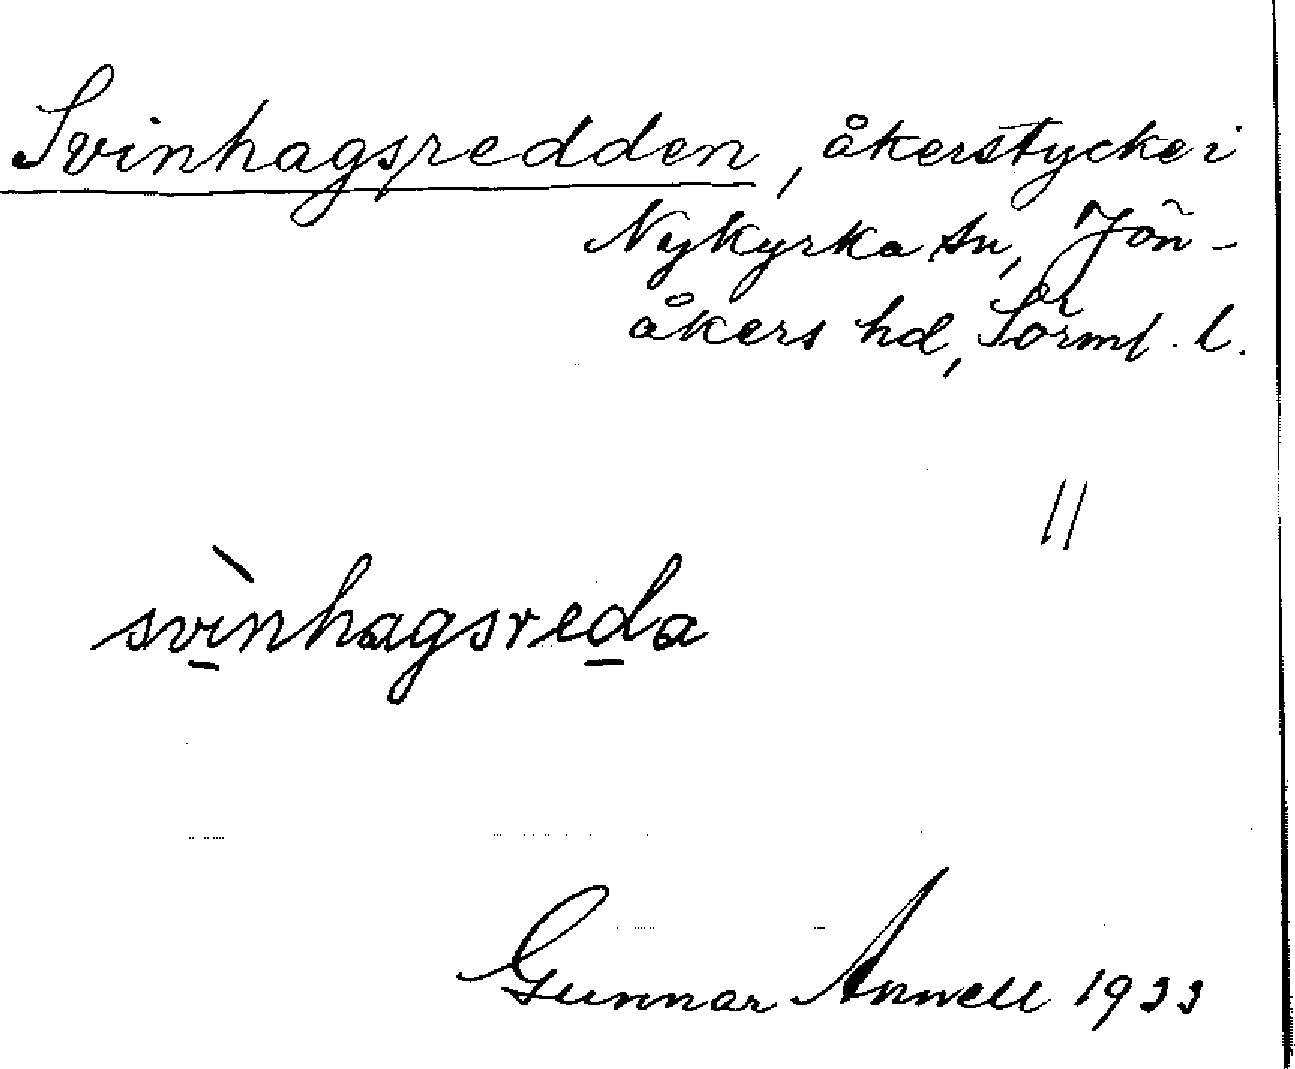 Svinhagsredden, åkerstycke i
Nykyrka sn, Jön-
åkers hd, Sörml. l.
//
svìnhagsreda
Gunnar Annell 1933